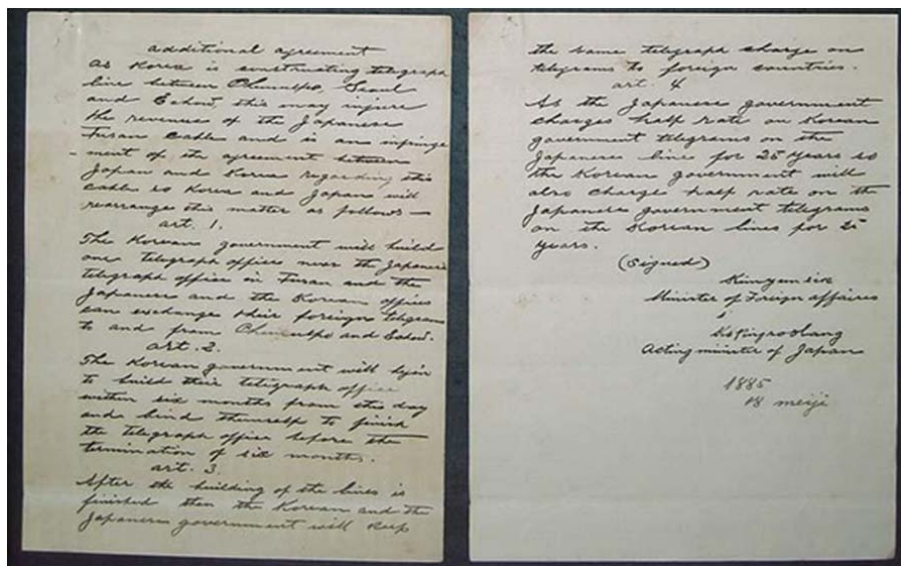 additional agreement
As Korea is constructing telegraph
line between Chemulpo, Seoul
and Eshow this may injure
the revenue of the Japanese
Fusan cable and is an infringe
-ment of the agreement between
Japan and Korea regarding this
cable so Korea and Japan will
rearrange this matter as follows—
art. 1.
The Korean government will build
one telegraph offices near the Japanese
telegraph office in Fusan and the
Japanese and the Korean offices
can exchange their foreign telegrams
to and from Chemulpo and Eshow.
art. 2.
The Korean government will begin
to build their telegraph office
within six months from this day
and bind themself to finish
the telegraph office before the
termination of six months.
art. 3
After the building of the lines is
finished then the Korean and the
Japanese government will keep
the same telegraph charge on
telegrams to foreign countries.
art. 4
As the Japanese government
charges half rate on Korean
government telegrams on the
Japanese line for 25 years so
the Korean government will
also charge half rate on the
Japanese government telegrams
on the Korean lines for 25
years.
(Signed)
Kimyunsik
Minister of Foreign affaires
Acting minister of Japan
1885
18 meiji